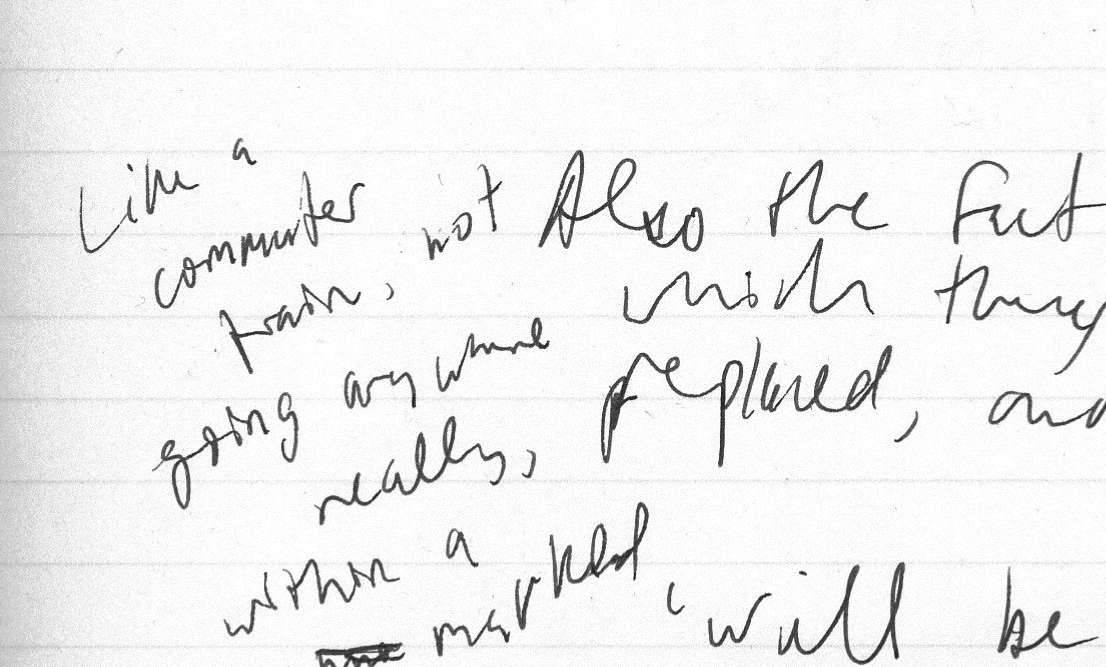 Like a
commuter
train, not
going anywhere
really,
within a
marked
Also the fact
which they
replaced, and
will be